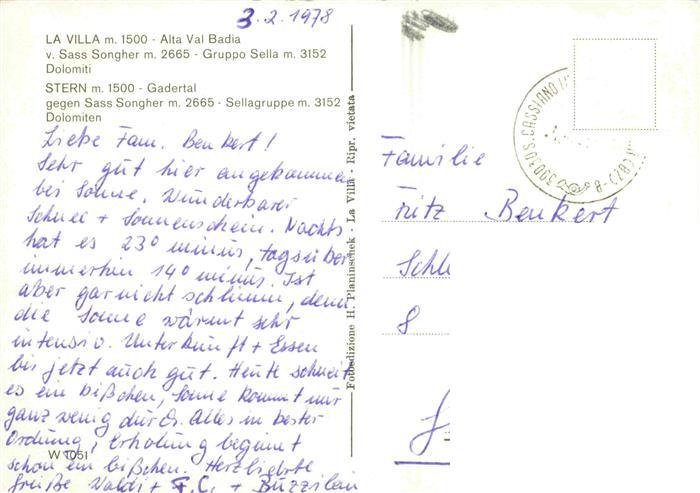 3.2.1978
LA VILLA m. 1500 - Alta Val Badia
v. Sass Songher m. 2665 - Gruppo Sella m. 3152
Dolomiti
STERN m. 1500 - Gadertal
gegen Sass Songher m. 2665 - Sellagruppe m. 3152
Dolomiten
Liebe Fam. Benkert!
Sehr gut hier angekommen
bei Sonne. Wunderbarer
Schnee + Sonnenschein. Nachts
hat es 23° minus, tagsüber
immerhin 14° minus. Ist
aber gar nicht schlimm, denn
die Sonne wärmt sehr
intensiv. Unterkunft + Essen
bis jetzt auch gut. Heute schneit
es ein bißchen, Sonne kommt nur
ganz wenig durch. Alles in bester
Ordnung, Erholung beginnt
schon ein bißchen. Herzlichste
Grüße Waldi + F.C. +
W 1051
Fotoedizione H. Planinschek - La Villa - Ripr. vietata
39030 S. CASSIANO
(BZ)
Familie
Fritz Benkert
Schl
8